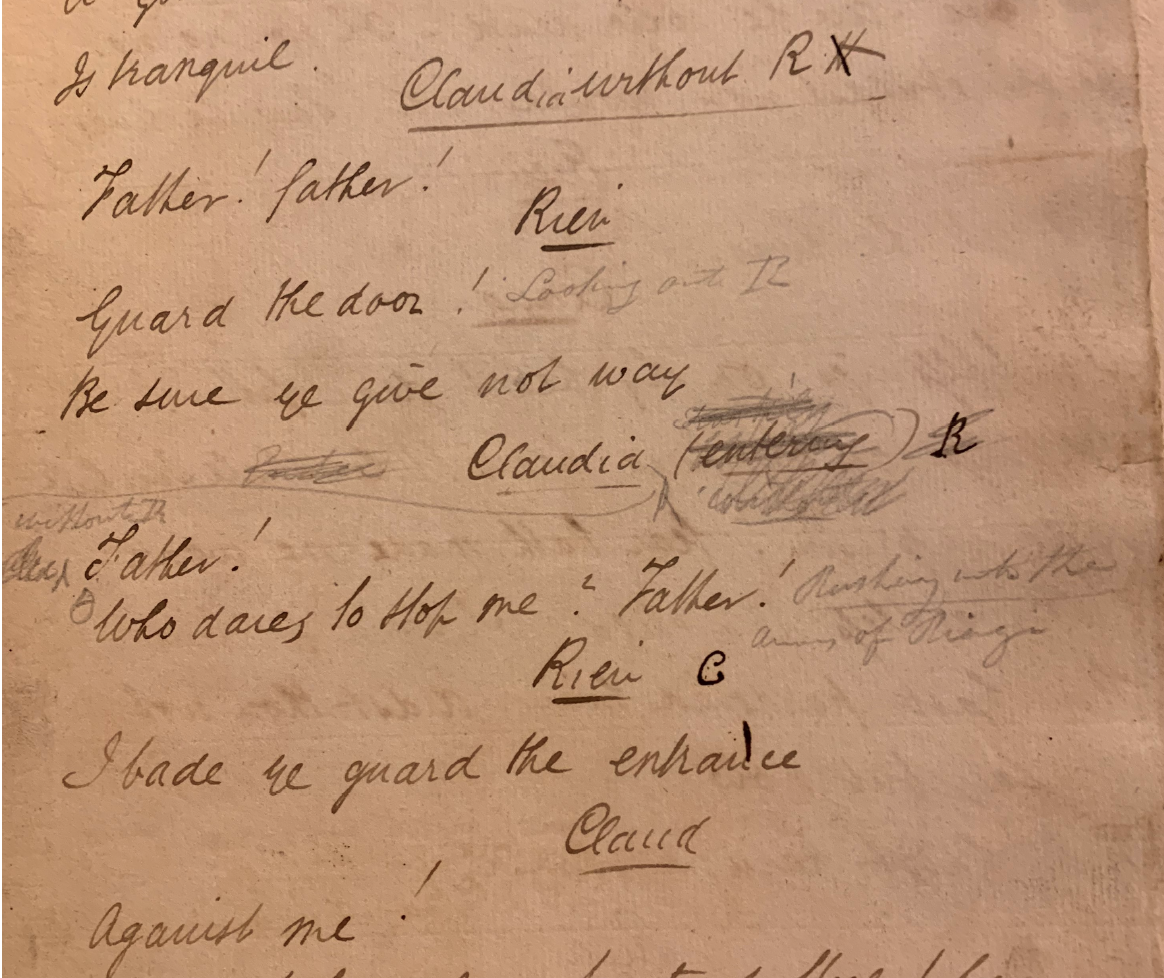 Is tranquil.
Claudia without R H
Father! father!
Rien
Guard the door! Looking out R
Be sure ye give not way
Claudia (entering) R
without R
Father!
Who dares to stop me? Father! Rushing into the
arms of Rienzi
Rien C
I bade ye guard the entrance
Claud
Against me!